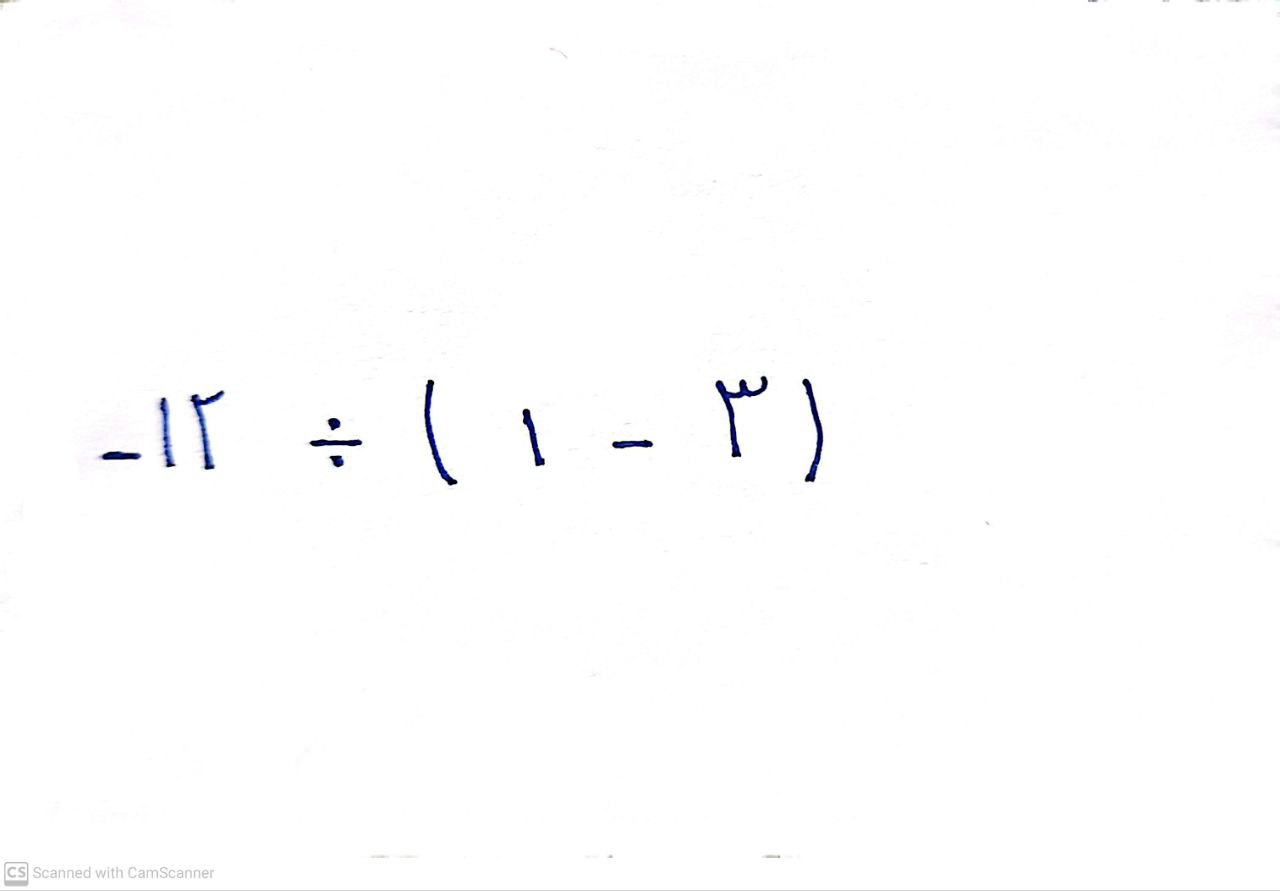 -۱۲ ÷ ( ۱ - ۳ )
CS Scanned with CamScanner